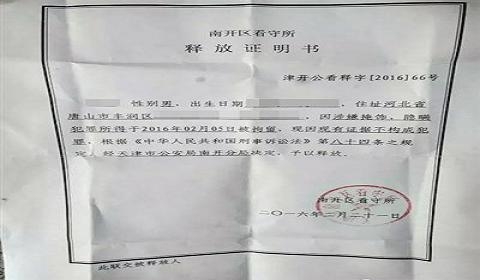 南开区看守所
释放证明书
津开公看释字[2016]66号
性别男，出生日期 ，住址河北省
唐山市丰润区 ，因涉嫌掩饰、隐瞒
犯罪所得于2016年02月05日被拘留，现因现有证据不构成犯
罪，根据《中华人民共和国刑事诉讼法》第八十四条之规
定，经天津市公安局南开分局决定，予以释放。
南开区看守所
二〇一六年二月二十一日
此联交被释放人